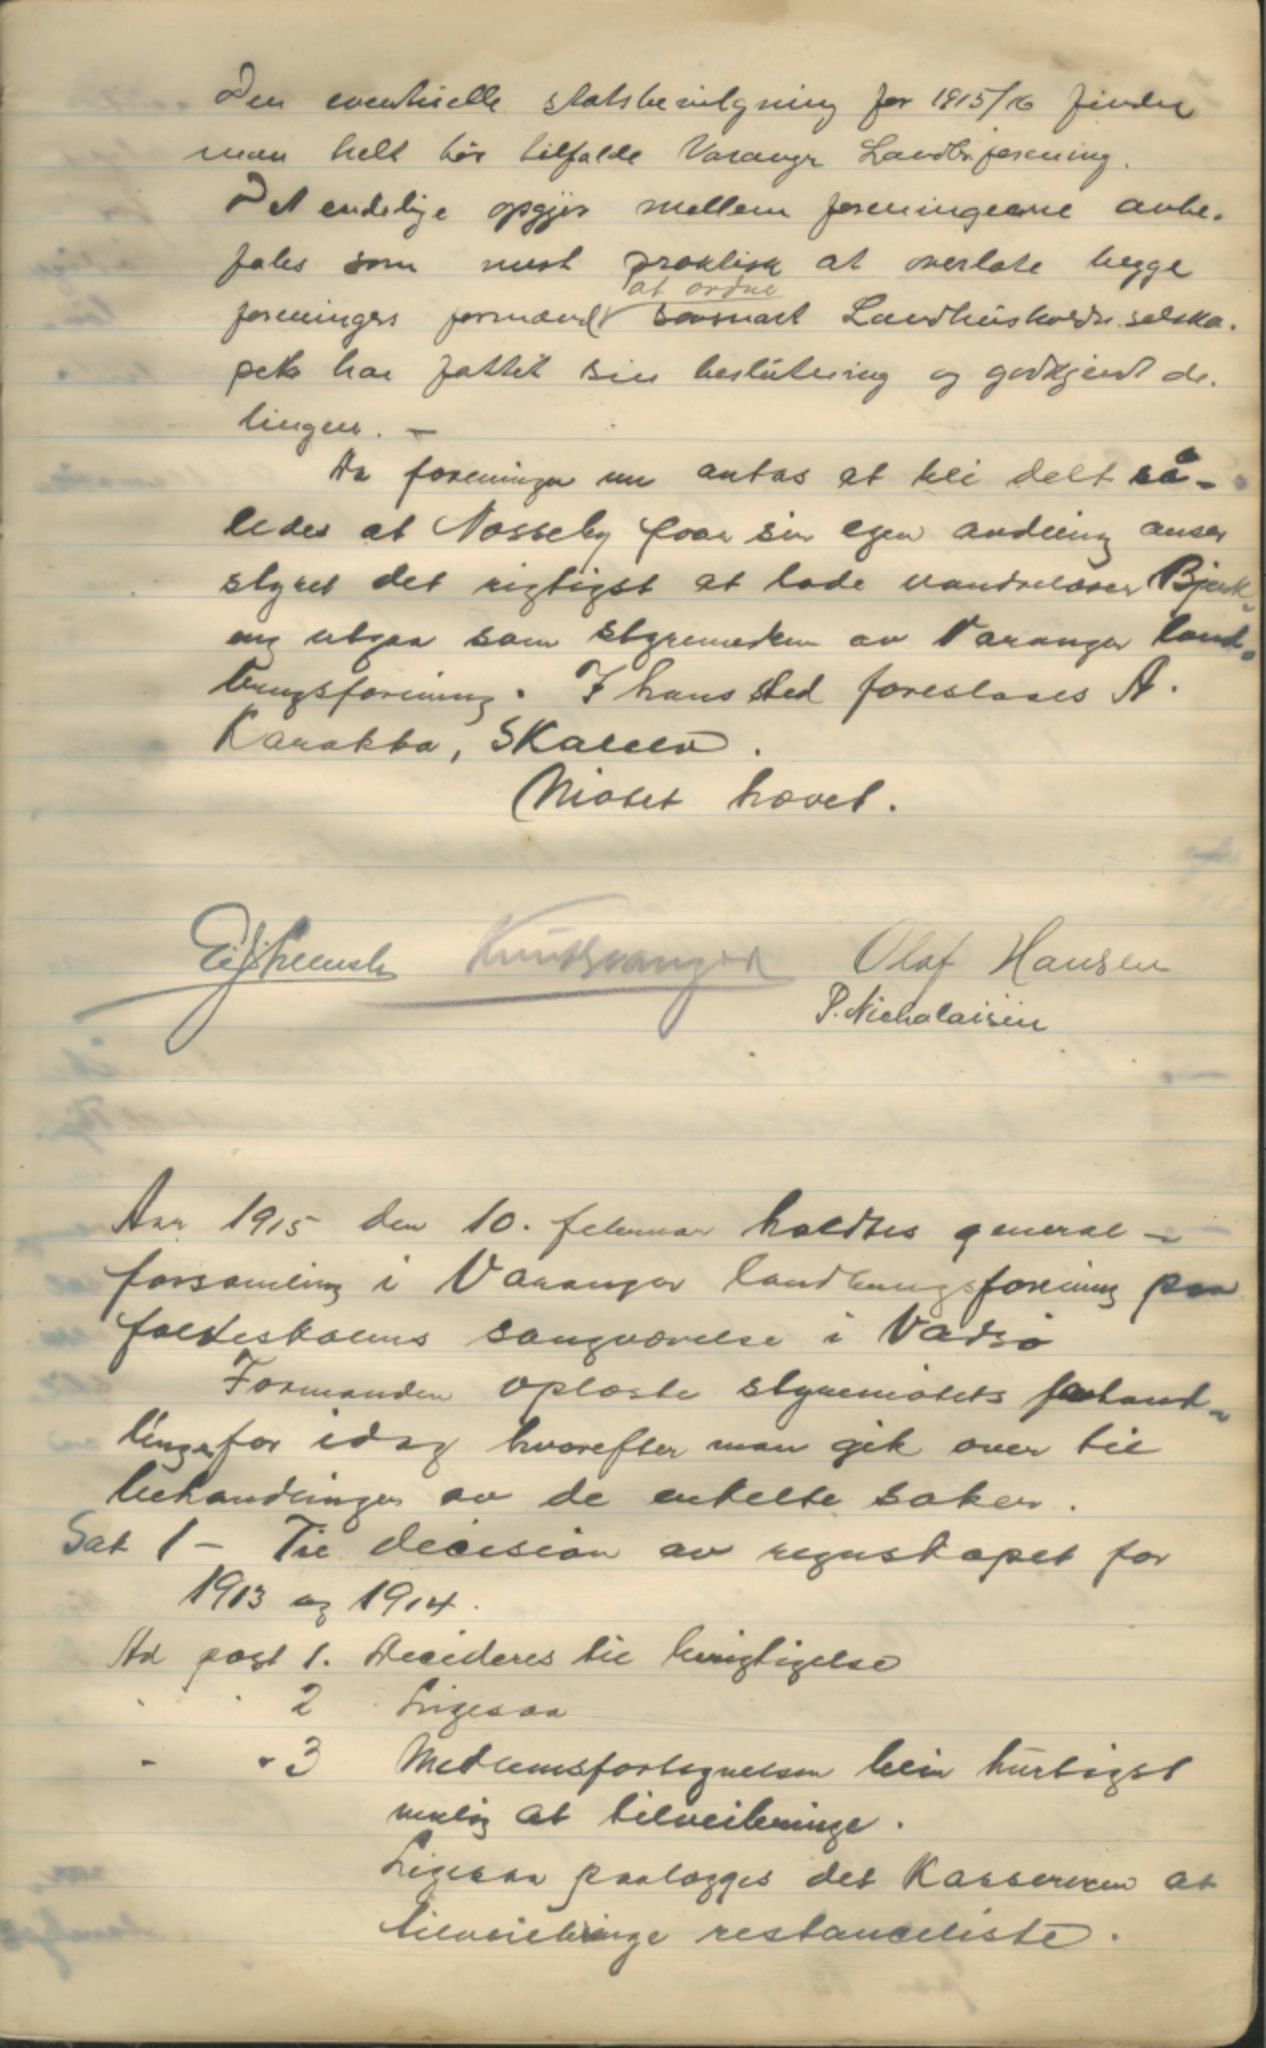 Den eventuelle statsbevilgning for 1915/16 finder
man helt bör tilfalde Varanger Landbr.forening.
Det endelige opgjør mellem foreningerne anbe-
fales som mest praktisk at overlate begge
foreningers formænd at ordne saasnart Landhusholdn. selska-
pet har fattet sin beslutning og godkjent de-
lingen. –
Da foreningen nu antas at bli delt så-
ledes at Nesseby faar sin egen avdeling anser
styret det rigtigst at lade vandrelærer Bjerk-
eng utgaa som styremedlem av Varanger land-
bruksforening. I hans sted foreslaaes A.
Karakka, Skallelv.
Mötet hævet.
Olaf Hansen
P. Nicholaisen
Aar 1915 den 10. februar holdtes general-
forsamling i Varanger landbrugsforening paa
folkeskolens sangværelse i Vadsö
Formanden oplæste styremötets forhand-
linger for idag hvorefter man gik over til
behandlingen av de enkelte saker.
Sak 1 – Til decision av regnskapet for
1913 og 1914.
Ad post 1. Decideres til berigtigelse
" " 2 Ligesaa
" " 3 Medlemsfortegnelsen blir hurtigst
mulig at tilveibringe.
Ligesaa paalægges det Kassereren at
tilveiebringe restanceliste.